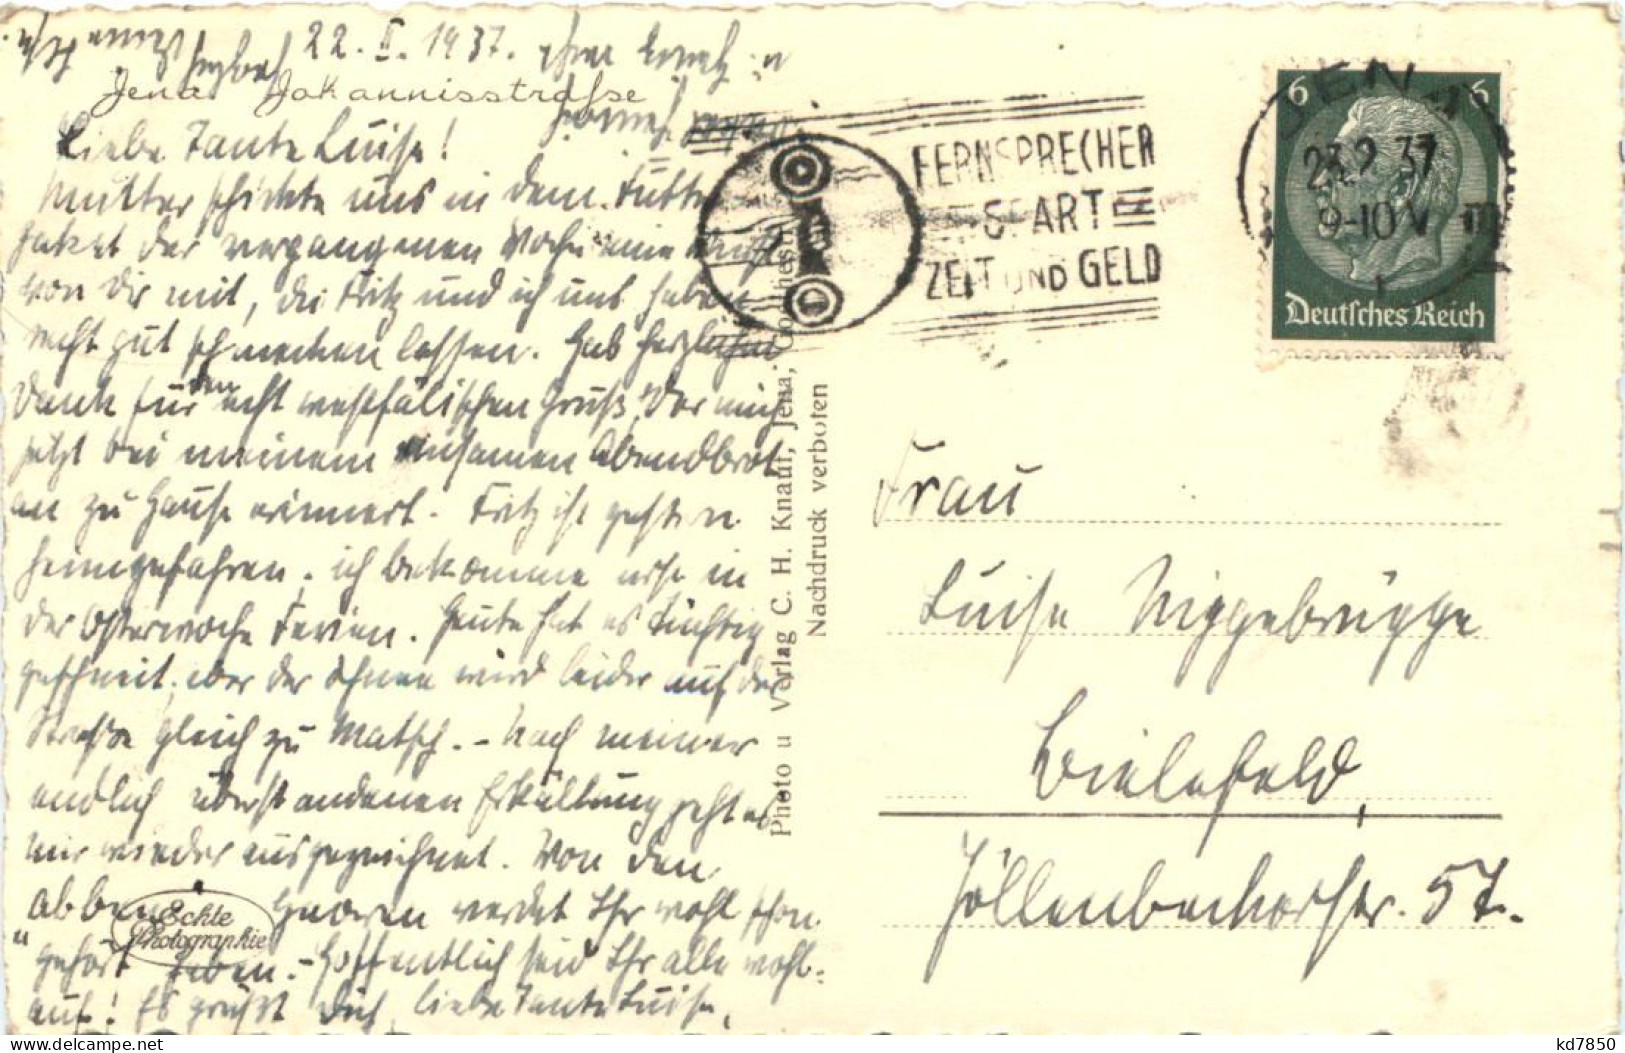 22. II. 1937.
Jena. Johannisstraße
Liebe Tante Luise!
Mutter schickte uns in dem Futter
paket der vergangenen Woche eine Wurst
von Dir mit, die Fritz und ich uns haben
recht gut schmecken lassen. Hab herzlichen
Dank für den echt westfälischen Gruß, der mich
jetzt bei meinem einsamen Abendbrot
an zu Hause erinnert. Fritz ist gestern
heimgefahren, ich bekomme erst in
der Osterwoche Ferien. Heute hat es tüchtig
geschneit, aber der Schnee wird leider auf der
Straße gleich zu Matsch. - Nach meiner
endlich überstandenen Erkältung geht es
mir wieder ausgezeichnet. Von den
werdet Ihr wohl schon
gehört haben. - Hoffentlich seid Ihr alle wohl-
auf! Es grüßt Dich, liebe Tante Luise,
Echte
Photographie
Photo u Verlag C. H. Knauf, Jena,
Nachdruck verboten
FERNSPRECHER
SPART
ZEIT UND GELD
JENA
23.2.37
9-10 V
6 6
Deutsches Reich
Frau
Luise Niggebrügge
Bielefeld,
Jöllenbeckerstr. 57.
kd7850